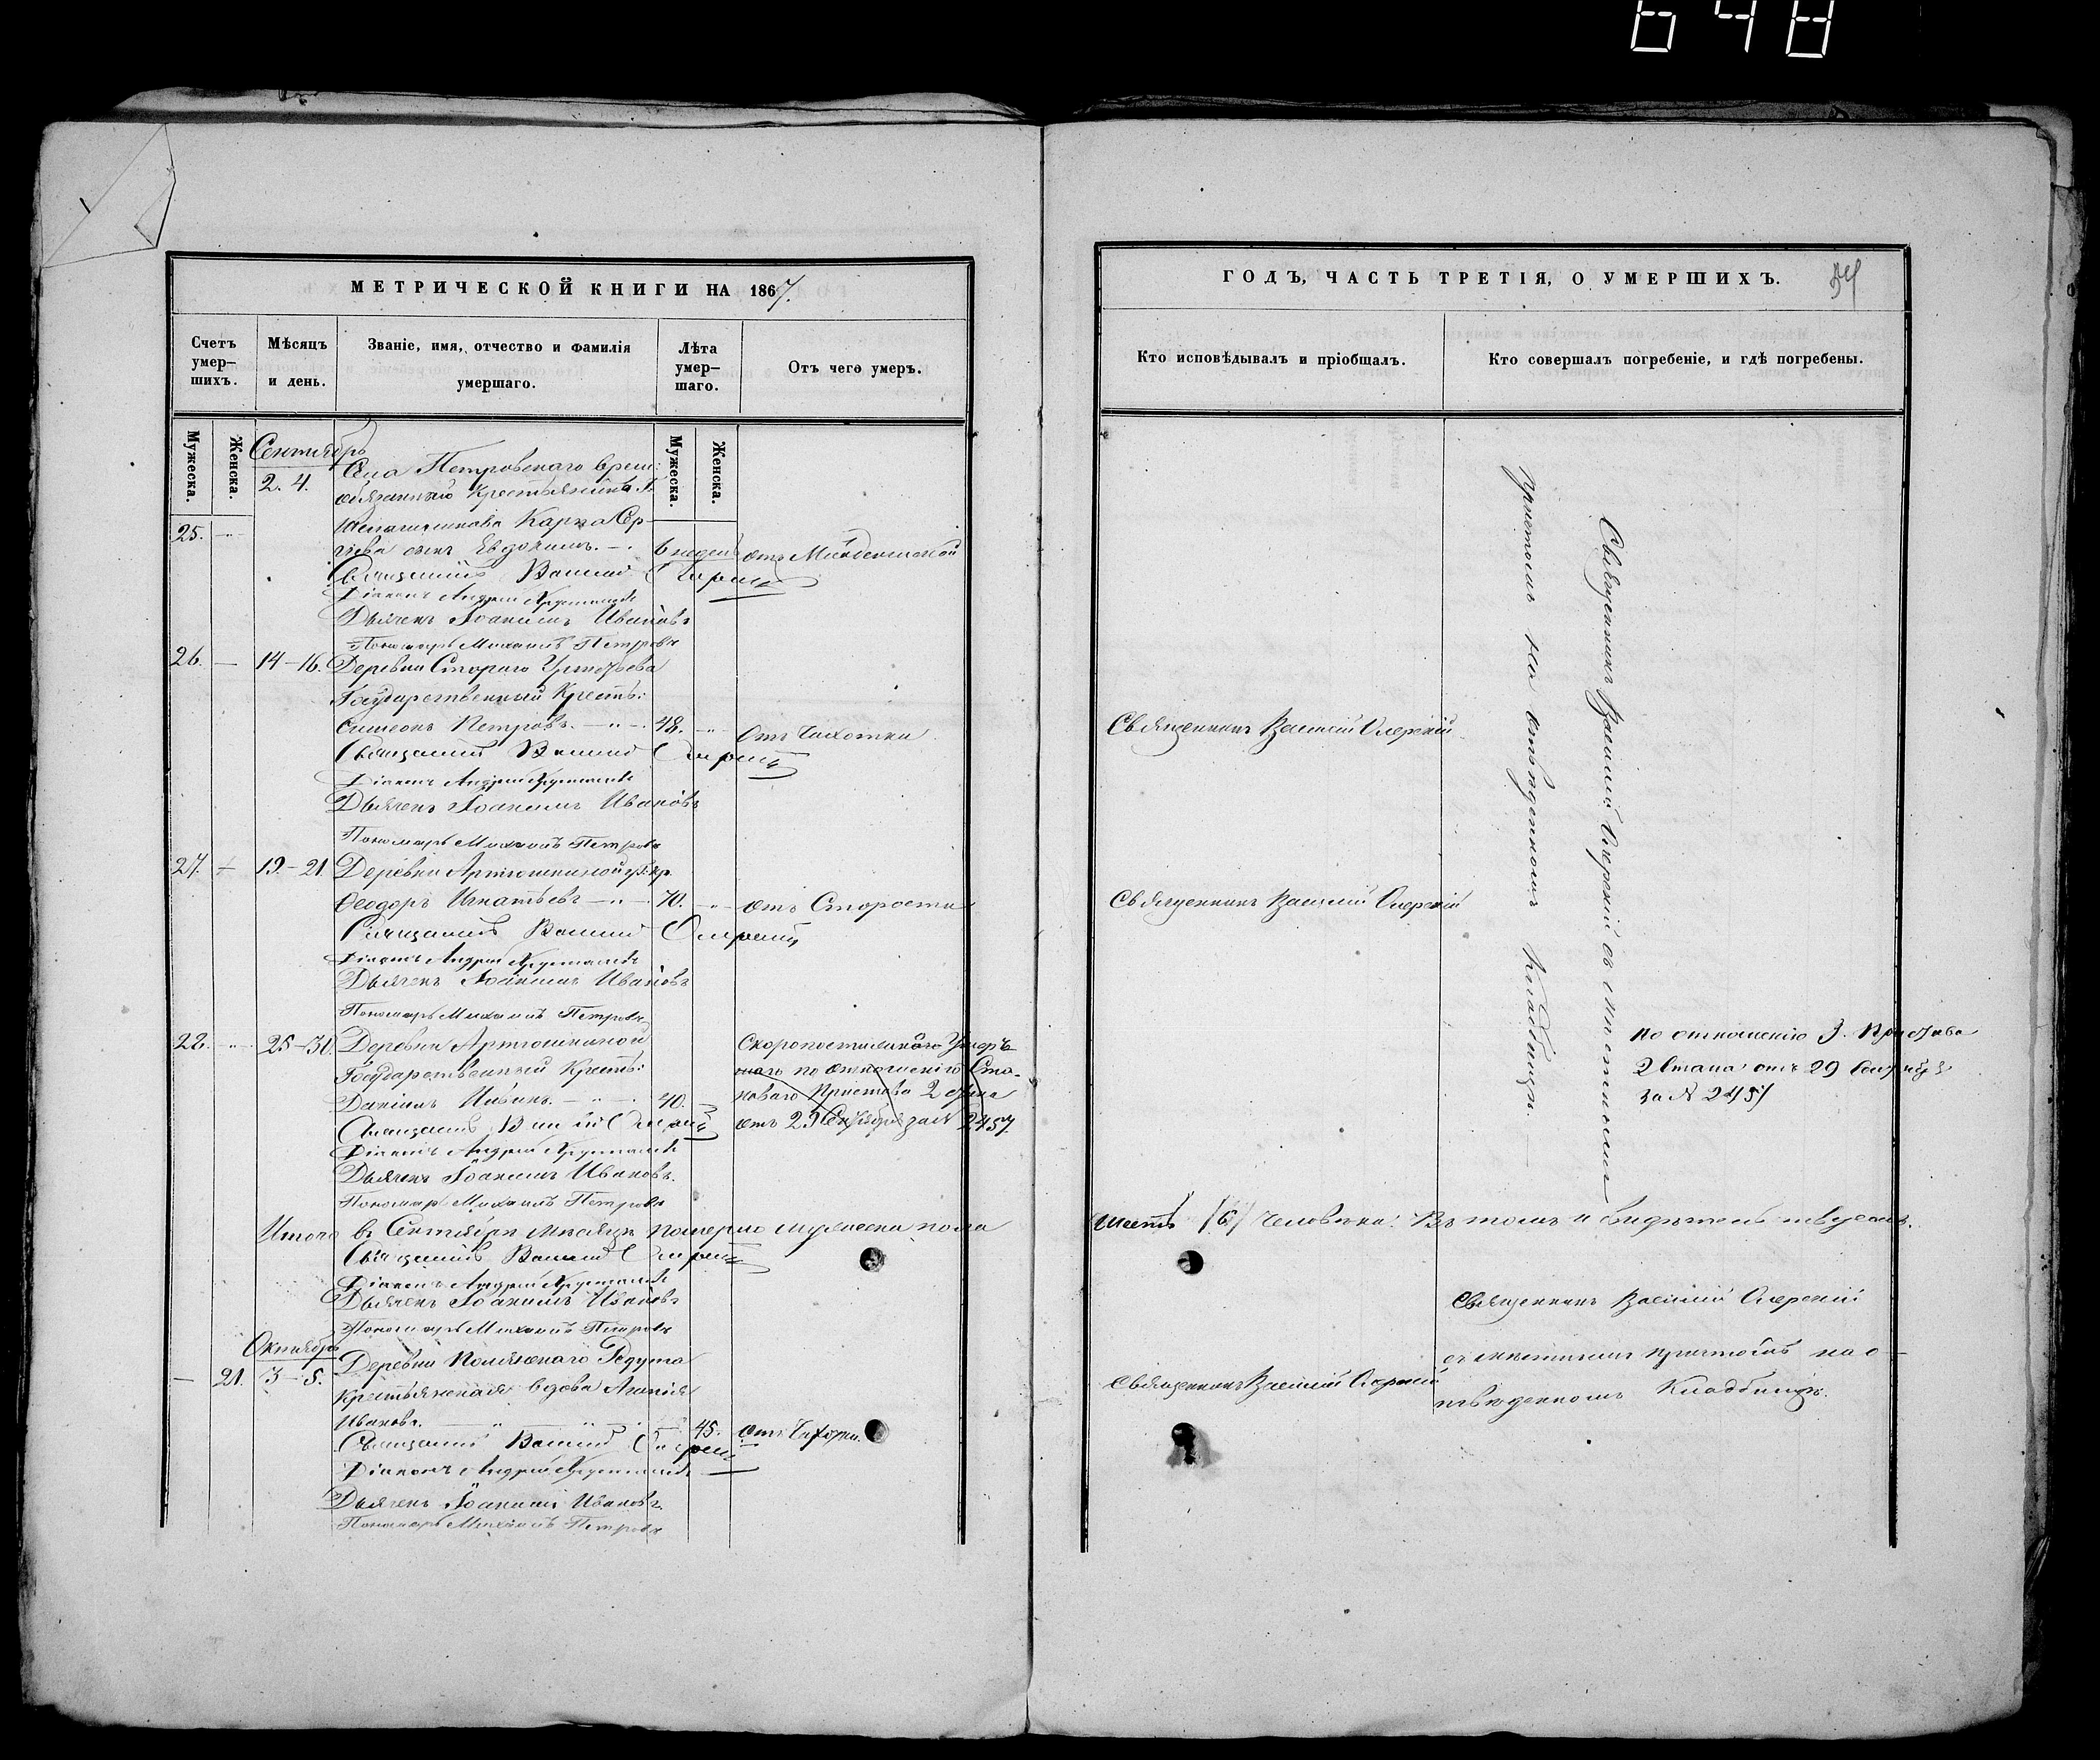 648
МЕТРИЧЕСКОЙ КНИГИ НА 1867.
Счетъ умер–шихъ.
Мѣсяцъ и день.
Званіе, имя, отчество и фамилія умершаго.
Лѣта умер–шаго.
Отъ чего умеръ.
Мужеска.
Женска.
Мужеска.
Женска.
Сентябрь
2. 4.
Села Петровскаго врем:
обязаннаго Крестьянина
25.
Карпа Сер–
гіева сынъ Евдокимъ.
6 недель
отъ Младенческой
Священникъ Василій Озерскій
Діаконъ Андрей
Дьячекъ Іоакимъ Ивановъ
Пономарь Михаилъ Петровъ
26. — 14–16. Деревни Стараго
Государственный Крестъ:
Симеонъ Петровъ. 48.
Отъ Чахотки
Священникъ Василій Озерскій
Діаконъ Андрей
Дьячекъ Іоакимъ Ивановъ
Пономарь Михаилъ Петровъ
27. 19–21. Деревни Артюшкиной г. кр.
Ѳеодоръ Игнатьевъ 70. отъ Старости
Священникъ Василій Озерскій
Діаконъ Андрей
Дьячекъ Іоакимъ Ивановъ
Пономарь Михаилъ Петровъ
28. 25–30. Деревни Артюшкиной
Государственный Крестъ:
40.
Скоропостижно Умеръ
по отношенію Ста–
новаго Пристава 2 стана
отъ 29 Сентября за № 2457
Священникъ Василій Озерскій
Діаконъ Андрей
Дьячекъ Іоакимъ Ивановъ.
Пономарь Михаилъ Петровъ
Итого въ Сентябрѣ мѣсяцѣ померло мужеска пола
Священникъ Василій Озерскій
Діаконъ Андрей
Дьячекъ Іоакимъ Ивановъ
Пономарь Михаилъ Петровъ
Октябрь
— 21. 3–5. Деревни Редута
Крестьянская вдова
Иванова. 45. отъ Чахотки.
Священникъ Василій Озерскій
Діаконъ Андрей
Дьячекъ Іоакимъ Ивановъ.
Пономарь Михаилъ Петровъ
ГОДЪ, ЧАСТЬ ТРЕТІЯ, О УМЕРШИХЪ.
Кто исповѣдывалъ и пріобщалъ.
Кто совершалъ погребеніе, и гдѣ погребены.
Священникъ Василій Озерскій
Священникъ Василій Озерскій
Священникъ Василій Озерскій съ мѣстнымъ
причтомъ на отведенномъ Кладбищѣ.
по отношенію Г. Пристава
2 Стана отъ 29 Сентября
за № 2457
шесть /6/ человѣкъ. Въ томъ и свидѣтельствуемъ.
Священникъ Василій Озерскій
съ мѣстнымъ причтомъ на о–
тведенномъ Кладбищѣ.
Священникъ Василій Озерскій